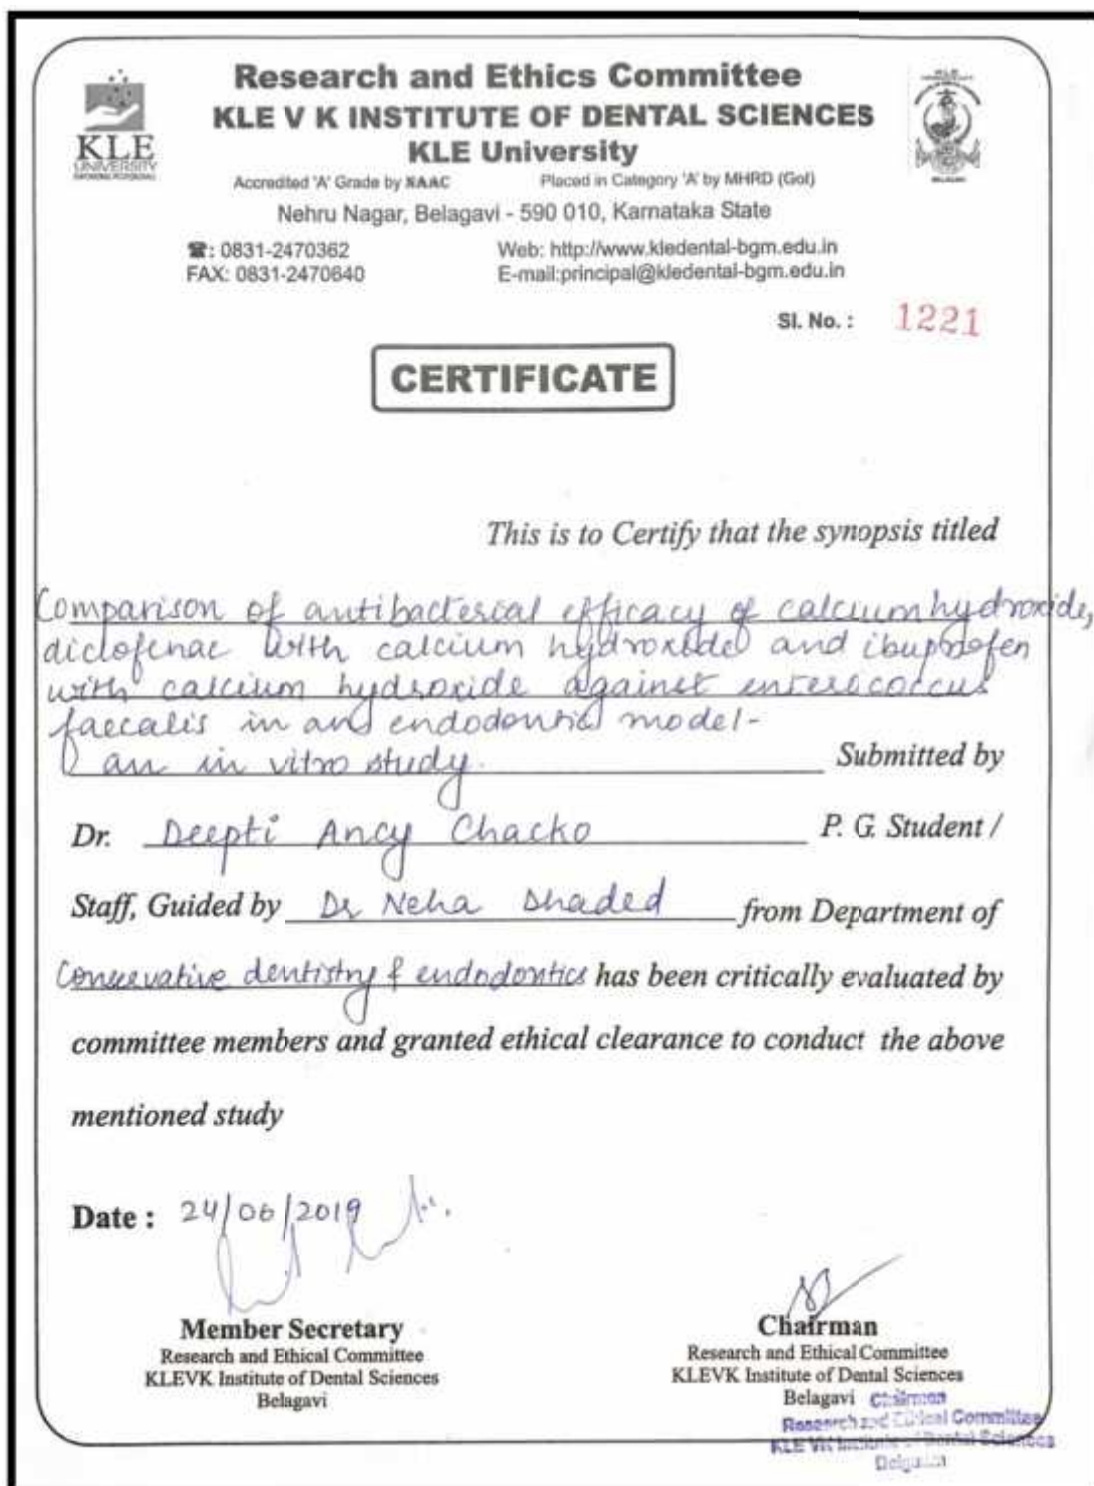 Research and Ethics Committee
KLE V K INSTITUTE OF DENTAL SCIENCES
KLE University
KLE
UNIVERSITY
Accredited 'A' Grade by NAAC Placed in Category 'A' by MHRD (GoI)
Nehru Nagar, Belagavi - 590 010, Karnataka State
☎: 0831-2470362 Web: http://www.kledental-bgm.edu.in
FAX: 0831-2470640 E-mail:principal@kledental-bgm.edu.in
Sl. No. : 1221
CERTIFICATE
This is to Certify that the synopsis titled
Comparison of antibacterial efficacy of calcium hydroxide,
diclofenac with calcium hydroxide and ibuprofen
with calcium hydroxide against enterococcus
faecalis in and endodontic model-
an in vitro study. Submitted by
Dr. Deepti Ancy Chacko P. G. Student /
Staff, Guided by Dr Neha Dhaded from Department of
Conservative dentistry & endodontics has been critically evaluated by
committee members and granted ethical clearance to conduct the above
mentioned study
Date : 24/06/2019
Member Secretary
Research and Ethical Committee
KLEVK Institute of Dental Sciences
Belagavi
Chairman
Research and Ethical Committee
KLEVK Institute of Dental Sciences
Belagavi
Chairman
Research and Ethical Committee
KLE VK Institute of Dental Sciences